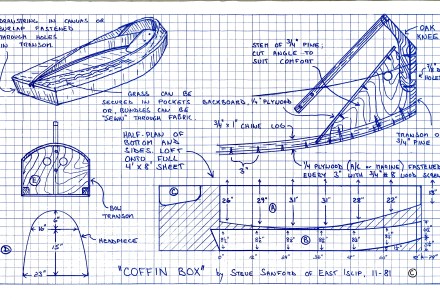 DRAWSTRING IN CANVAS OR
BURLAP FASTENED
THROUGH HOLES
IN TRANSOM.
GRASS CAN BE
SECURED IN POCKETS
OR, BUNDLES CAN BE
"SEWN" THROUGH FABRIC.
STEM OF 3/4" PINE;
CUT ANGLE TO
SUIT COMFORT
OAK
KNEE
HOLES
BACKBOARD, 1/4" PLYWOOD
3/4" x 1" CHINE LOG
3"
TRANSOM OF
3/4" PINE
1/4 PLYWOOD (A/C OR MARINE) FASTENED
EVERY 3" WITH 3/4" # 8 WOOD SCREWS
HALF-PLAN OF
BOTTOM AND
SIDES. LOFT
ONTO FULL
4' x 8' SHEET
E
BOW
TRANSOM
HEADPIECE
6"
10"
15"
23"
D
C
26" 29" 31" 31" 28" 22"
A
B
"COFFIN BOX" by STEVE SANFORD OF EAST ISLIP, 11-81
C